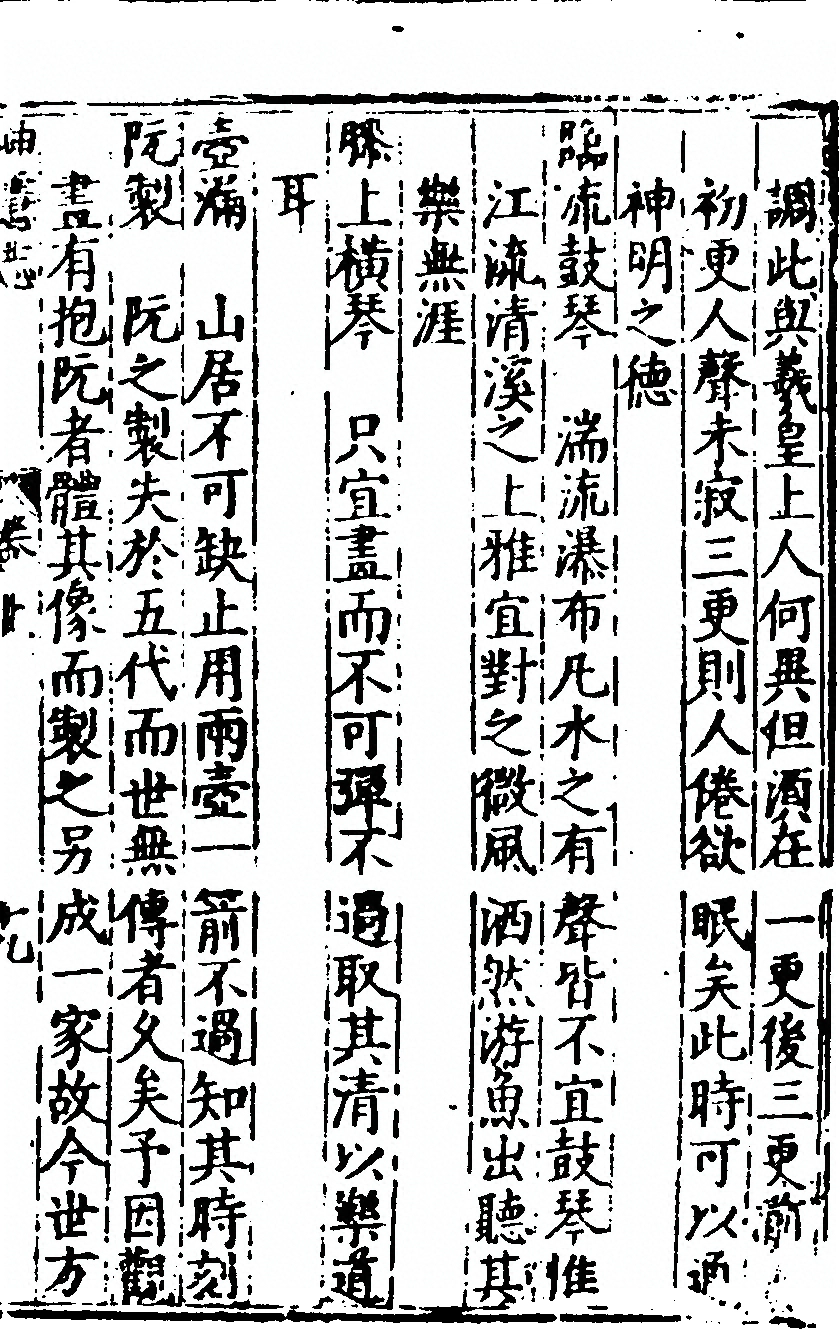 調此與羲皇上人何異但須在一更後三更前
初更人聲未寂三更則人倦欲眠矣此時可以通
神明之德
臨流鼓琴　湍流瀑布凡水之有聲皆不宜鼓琴惟
江流清溪之上雅宜對之微風洒然游魚出聽其
樂無涯
膝上橫琴　只宜畫而不可彈不過取其清以樂道
耳
壺漏　山居不可缺止用兩壺一箭不過知其時刻
阮製　阮之製失於五代而世無傳者久矣予因觀
畫有抱阮者體其像而製之另成一家故今世方